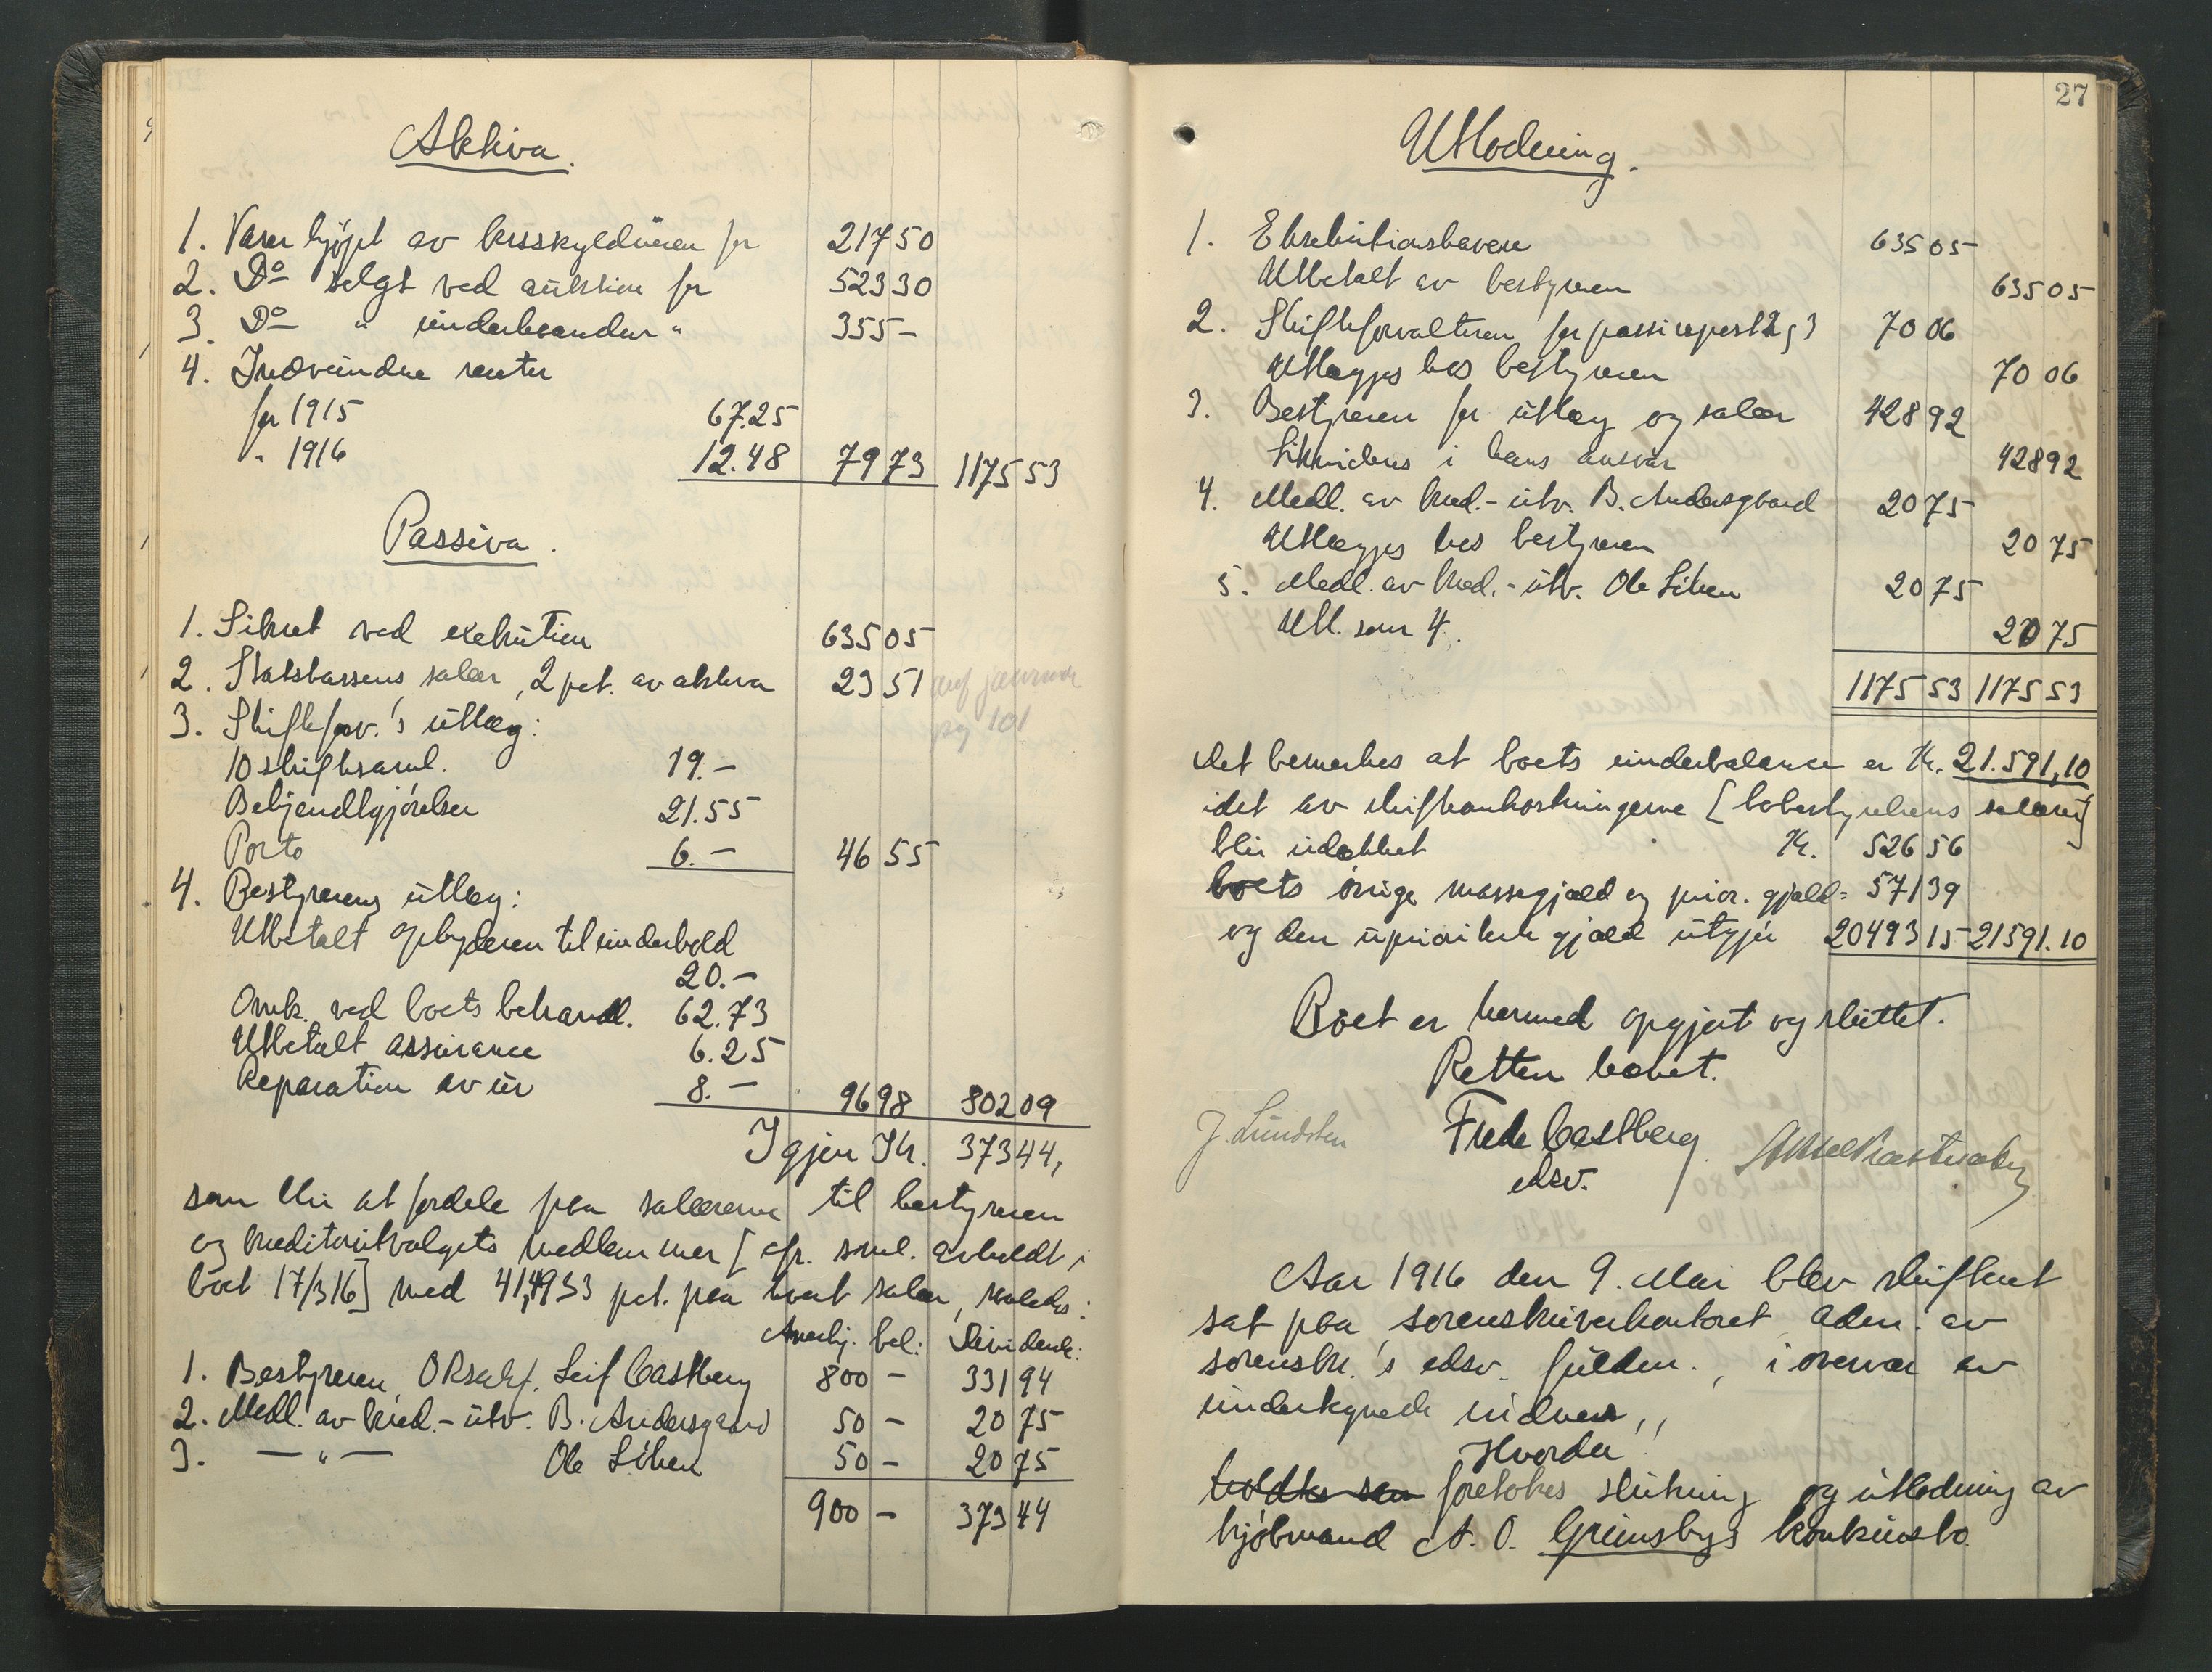 Aktiva.
1. Varer kjøpt av krisskyldneren for 217 50
2. Do solgt ved auktion for 523 30
3. Do " underhaanden " 355 -
4. Indvundne renter
for 1915 67.25
" 1916 12.48 79 73 1175 53
Passiva.
1. Sikret ved exekution 635 05
2. Statskassens salær, 2 pct. av aktiva 23 51
pag 101
3. Skifteforv.'s utlæg:
10 skiftesaml. 19.-
Bekjendtgjørelser 21.55
Porto 6.- 46 55
4. Bestyrerens utlæg:
Utbetalt opbyderen til underhold
20.-
Omk. ved boets behandl. 62.73
Utbetalt assurance 6.25
Reparation av ur 8.- 96 98 802 09
Igjen Kr. 373 44,
som blir at fordele paa salærerne til bestyreren
og kreditorutvalgets medlemmer [cfr. saml. avholdt i
boet 17/3 16] med 41,4933 pct. paa hvert salær, saaledes:
Anerkj. bel: Dividende:
1. Bestyreren, ORsakf. Leif Castberg 800 - 331 94
2. Medl. av kred.-utv. B. Andersgaard 50 - 20 75
3. — " — Ole Liben 50 - 20 75
900 - 373 44
27
Utlodning.
1. Eksekutionshavere 635 05
Utbetalt av bestyreren 635 05
2. Skifteforvalteren for passivapost 2 og 3 70 06
Utlægges hos bestyreren 70 06
3. Bestyreren for utlæg og salær 428 92
Likvideres i hans ansvar 428 92
4. Medl. av kred.-utv. B. Andersgaard 20 75
Utlægges hos bestyreren 20 75
5. Medl. av kred.-utv. Ole Liben 20 75
Utl. som 4. 20 75
1175 53 1175 53
Det bemerkes at boets underbalance er Kr. 21.591,10
idet av skifteomkostningerne [bobestyrelsens salærer]
blir udækket Kr. 526 56
boets øvrige massegjæld og prior. gjæld = 571 39
og den uprioriterte gjæld utgjør 20493 15 21591.10
Boet er hermed opgjort og sluttet.
Retten hævet.
J. Lundsten Frede Castberg
edsv.
Aar 1916 den 9. Mai blev skifteret
sat paa sorenskriverkontoret, adm. av
sorenskr.'s edsv. fuldm., i overvær av
undertegnede vidner,,
Hvorda!!
holdtes som foretokes slutning og utlodning av
kjøbmand A. O. Grimsbys konkursbo.